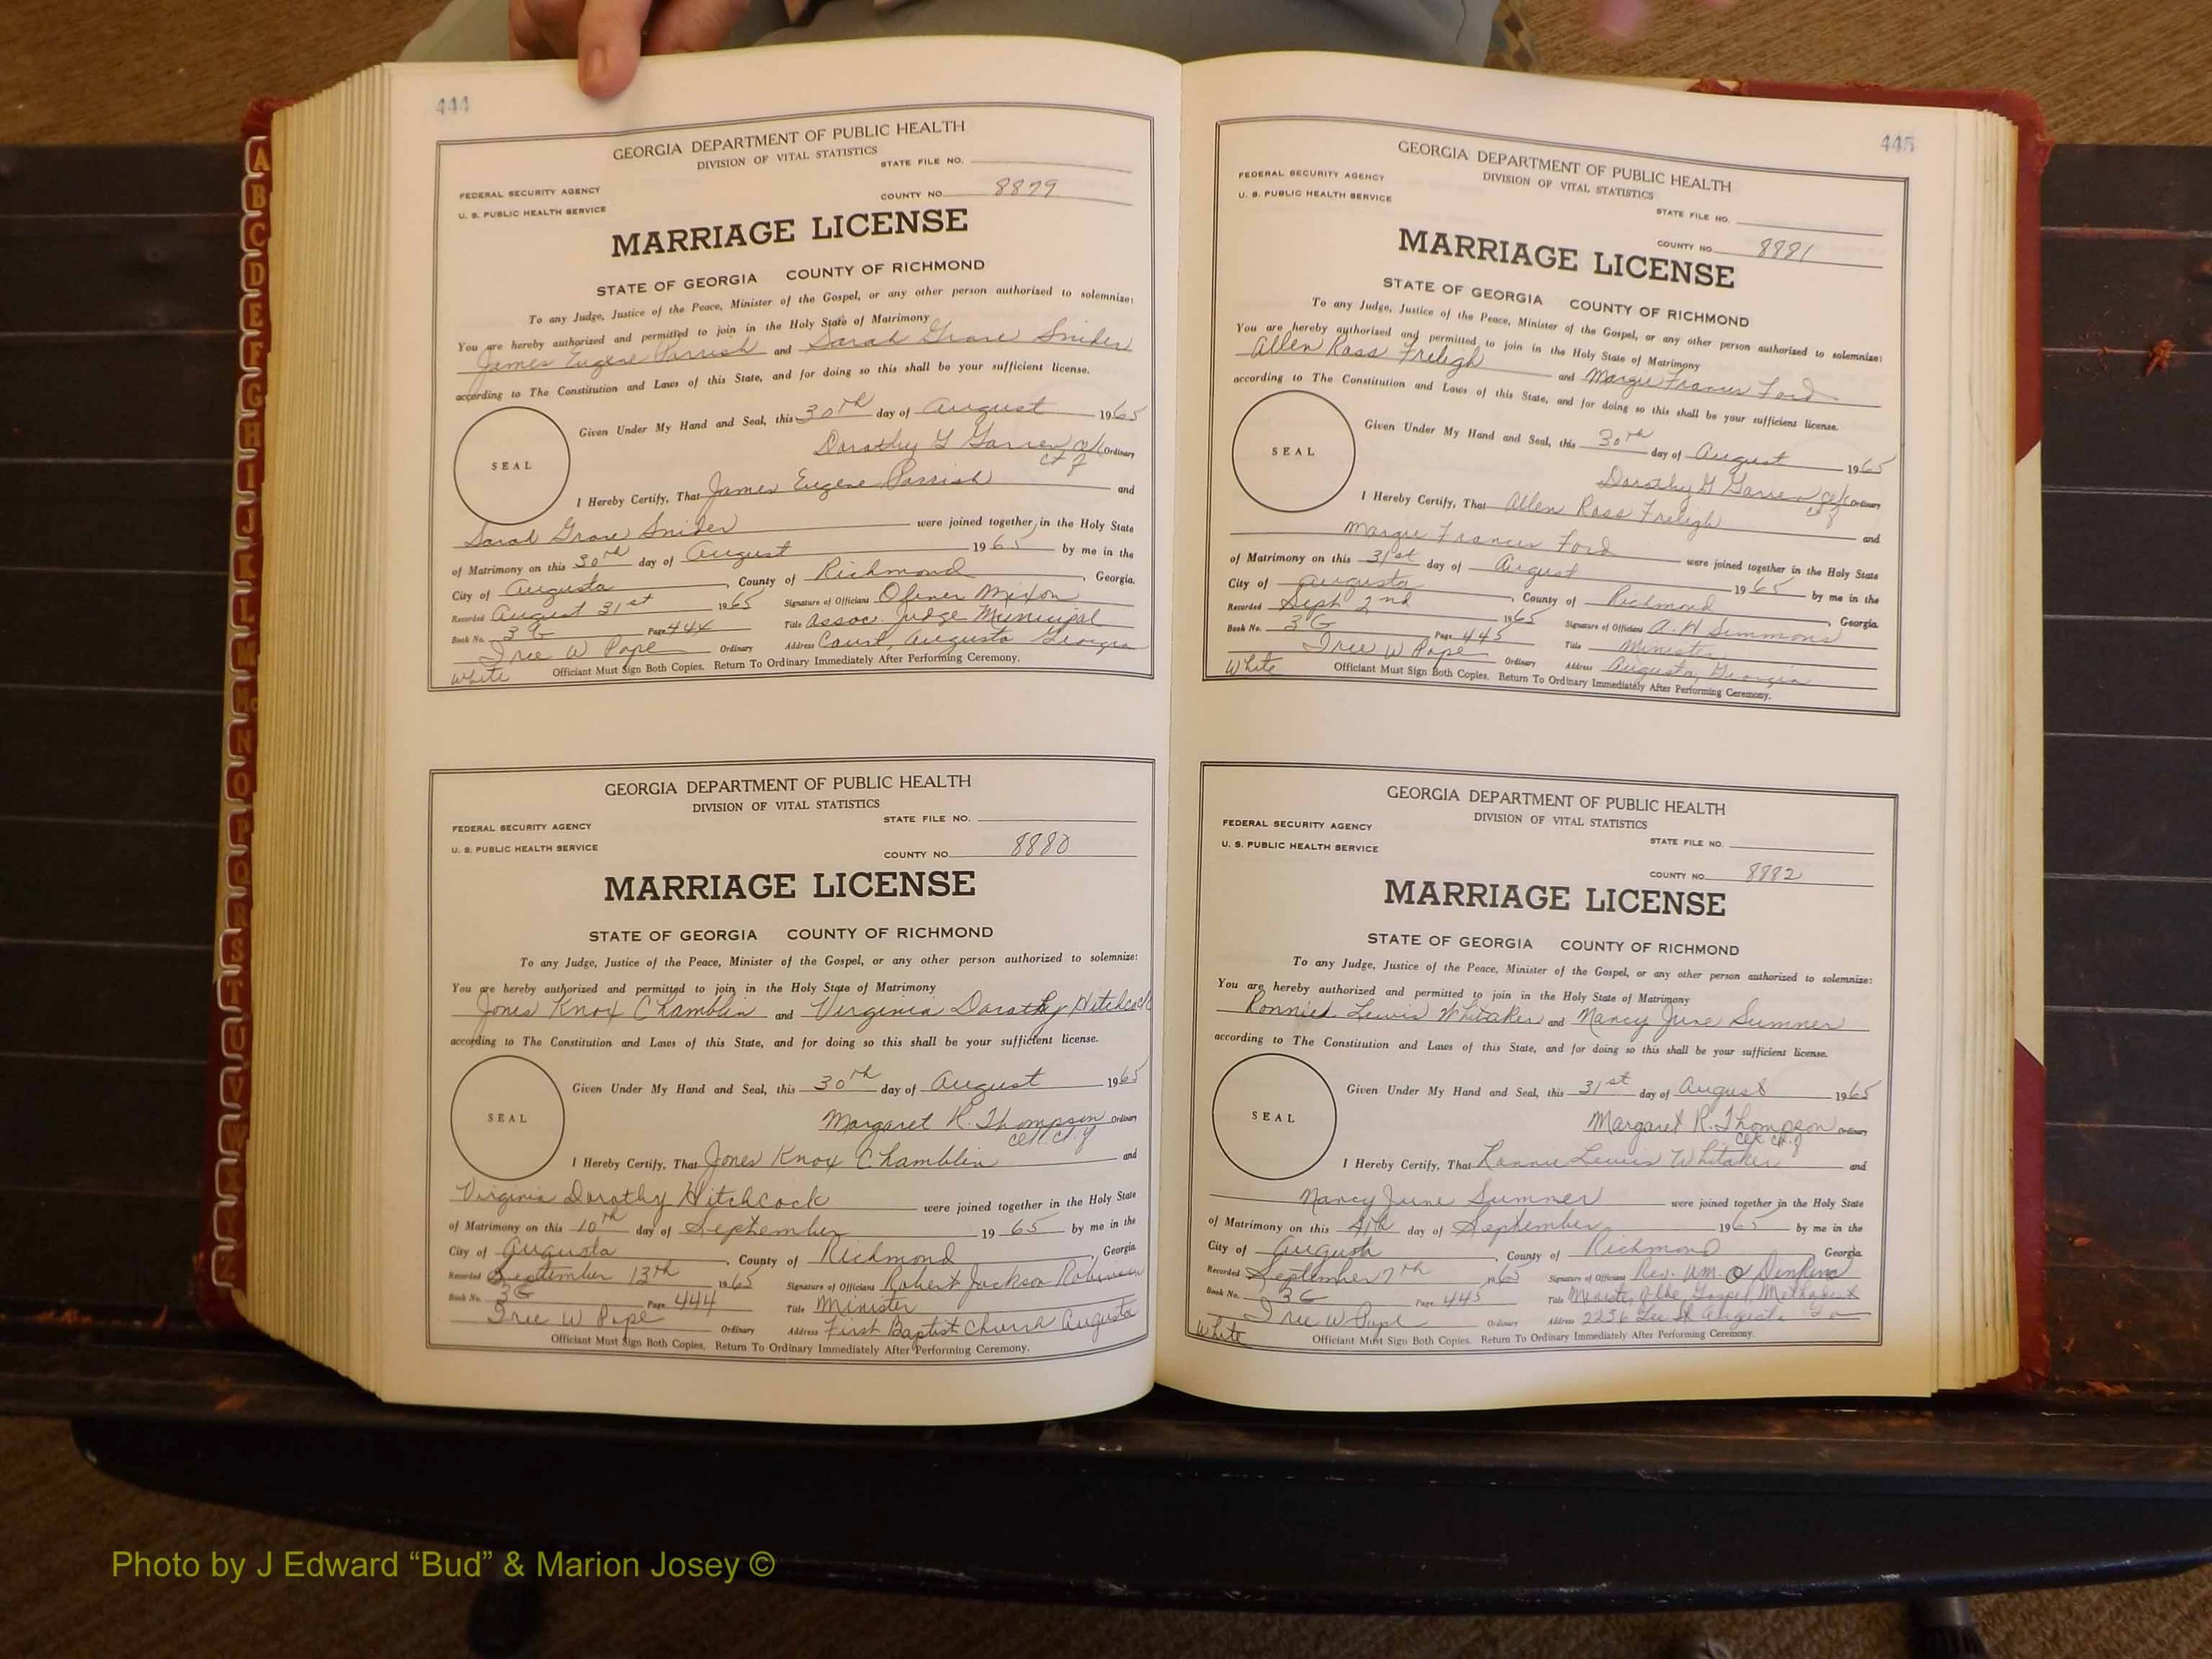 444
GEORGIA DEPARTMENT OF PUBLIC HEALTH
DIVISION OF VITAL STATISTICS
STATE FILE NO.
FEDERAL SECURITY AGENCY
COUNTY NO. 8879
U. S. PUBLIC HEALTH SERVICE
MARRIAGE LICENSE
STATE OF GEORGIA COUNTY OF RICHMOND
To any Judge, Justice of the Peace, Minister of the Gospel, or any other person authorized to solemnize:
You are hereby authorized and permitted to join in the Holy State of Matrimony
James Eugene Parrish and Sarah Grace Snider
according to The Constitution and Laws of this State, and for doing so this shall be your sufficient license.
SEAL
Given Under My Hand and Seal, this 30th day of August 1965
Dorothy G Garren Clk Ordinary
Ct of
I Hereby Certify, That James Eugene Parrish and
Sarah Grace Snider were joined together in the Holy State
of Matrimony on this 30th day of August 1965 by me in the
City of Augusta, County of Richmond, Georgia.
Recorded August 31st 1965 Signature of Officiant Oliver Mixon
Book No. 3G Page 444 Title Assoc. Judge Municipal
Iree W Pope Ordinary Address Court, Augusta Georgia
White Officiant Must Sign Both Copies. Return To Ordinary Immediately After Performing Ceremony.
GEORGIA DEPARTMENT OF PUBLIC HEALTH
DIVISION OF VITAL STATISTICS
STATE FILE NO.
FEDERAL SECURITY AGENCY
U. S. PUBLIC HEALTH SERVICE
COUNTY NO. 8880
MARRIAGE LICENSE
STATE OF GEORGIA COUNTY OF RICHMOND
To any Judge, Justice of the Peace, Minister of the Gospel, or any other person authorized to solemnize:
You are hereby authorized and permitted to join in the Holy State of Matrimony
Jones Knox Chamblin and Virginia Dorothy Hitchcock
according to The Constitution and Laws of this State, and for doing so this shall be your sufficient license.
SEAL
Given Under My Hand and Seal, this 30th day of August 1965
Margaret R. Thompson Ordinary
Clk. Ct. of
I Hereby Certify, That Jones Knox Chamblin and
Virginia Dorathy Hitchcock were joined together in the Holy State
of Matrimony on this 10th day of September 1965 by me in the
City of Augusta, County of Richmond, Georgia
Recorded September 13th 1965 Signature of Officiant Robert Jackson Robinson
Book No. 3G Page 444 Title Minister
Iree W Pope Ordinary Address First Baptist Church Augusta
Officiant Must Sign Both Copies. Return To Ordinary Immediately After Performing Ceremony.
445
GEORGIA DEPARTMENT OF PUBLIC HEALTH
DIVISION OF VITAL STATISTICS
FEDERAL SECURITY AGENCY
U. S. PUBLIC HEALTH SERVICE
STATE FILE NO.
COUNTY NO. 8881
MARRIAGE LICENSE
STATE OF GEORGIA COUNTY OF RICHMOND
To any Judge, Justice of the Peace, Minister of the Gospel, or any other person authorized to solemnize:
You are hereby authorized and permitted to join in the Holy State of Matrimony
Allen Ross Freligh and Margie Frances Ford
according to The Constitution and Laws of this State, and for doing so this shall be your sufficient license.
SEAL
Given Under My Hand and Seal, this 30th day of August 1965
Dorothy G Garren Clk Ordinary
Ct of
I Hereby Certify, That Allen Ross Freligh and
Margie Frances Ford were joined together in the Holy State
of Matrimony on this 31st day of August 1965 by me in the
City of Augusta, County of Richmond, Georgia
Recorded Sept 2nd 1965 Signature of Officiant A. H Simmons
Book No. 3G Page 445 Title Minister
Iree W Pope Ordinary Address Augusta, Georgia
White Officiant Must Sign Both Copies. Return To Ordinary Immediately After Performing Ceremony.
GEORGIA DEPARTMENT OF PUBLIC HEALTH
DIVISION OF VITAL STATISTICS
FEDERAL SECURITY AGENCY
STATE FILE NO.
U. S. PUBLIC HEALTH SERVICE
COUNTY NO. 8882
MARRIAGE LICENSE
STATE OF GEORGIA COUNTY OF RICHMOND
To any Judge, Justice of the Peace, Minister of the Gospel, or any other person authorized to solemnize:
You are hereby authorized and permitted to join in the Holy State of Matrimony
Lewis Whitaker and Nancy June Sumner
according to The Constitution and Laws of this State, and for doing so this shall be your sufficient license.
SEAL
Given Under My Hand and Seal, this 31st day of August 1965
Margaret R. Thompson Ordinary
Clk. Ct. of
I Hereby Certify, That Ronnie Lewis Whitaker and
Nancy June Sumner were joined together in the Holy State
of Matrimony on this 4th day of September 1965 by me in the
City of Augusta, County of Richmond Georgia
Recorded September 7th 1965 Signature of Officiant Rev. Wm. O Dinkins
Book No. 3G Page 445 Title Minister of the Gospel Methodist
Iree W Pope Ordinary Address 2236 Lee St Augusta Ga
White Officiant Must Sign Both Copies. Return To Ordinary Immediately After Performing Ceremony.
A
B
C
D
E
F
G
H
I
J
K
L
M
Mc
N
O
P
Q
R
S
T
U
V
W
X
Y
Z
Photo by J Edward “Bud” & Marion Josey ©